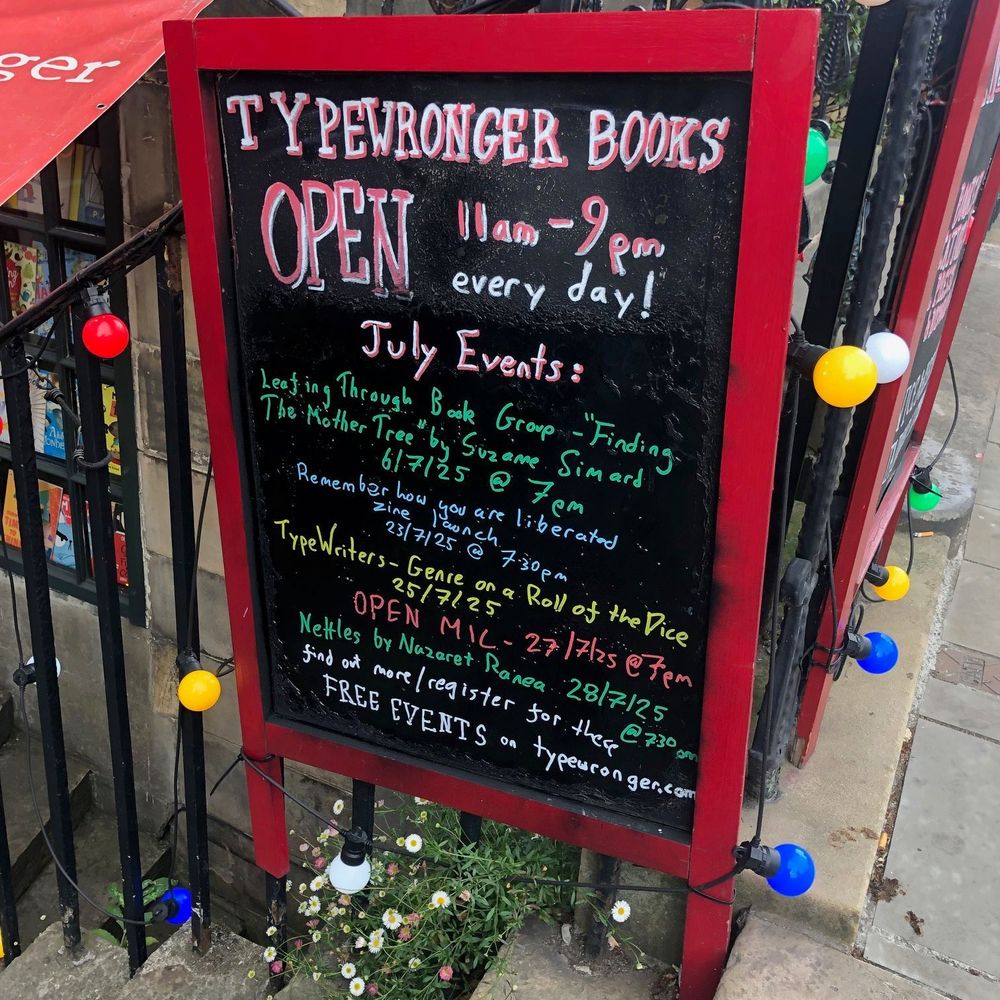 ger
TYPEWRONGER BOOKS
OPEN 11am-9pm
every day!
July Events:
Leafing Through Book Group - "Finding
The Mother Tree" by Suzanne Simard
6/7/25 @ 7pm
Remember how you are liberated
zine launch
23/7/25 @ 7:30pm
TypeWriters - Genre on a Roll of the Dice
25/7/25
OPEN MIC - 27/7/25 @ 7pm
Nettles by Nazaret Ranea 28/7/25
@ 730pm
find out more/register for these
FREE EVENTS on typewronger.com